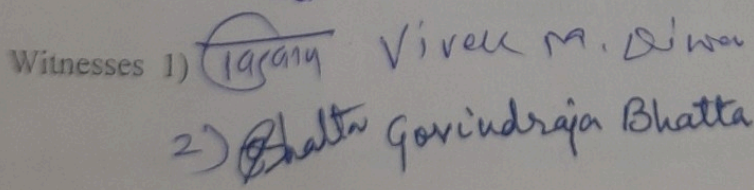 Witnesses 1) Vivek M.
2) Bhatta Govindraja Bhatta